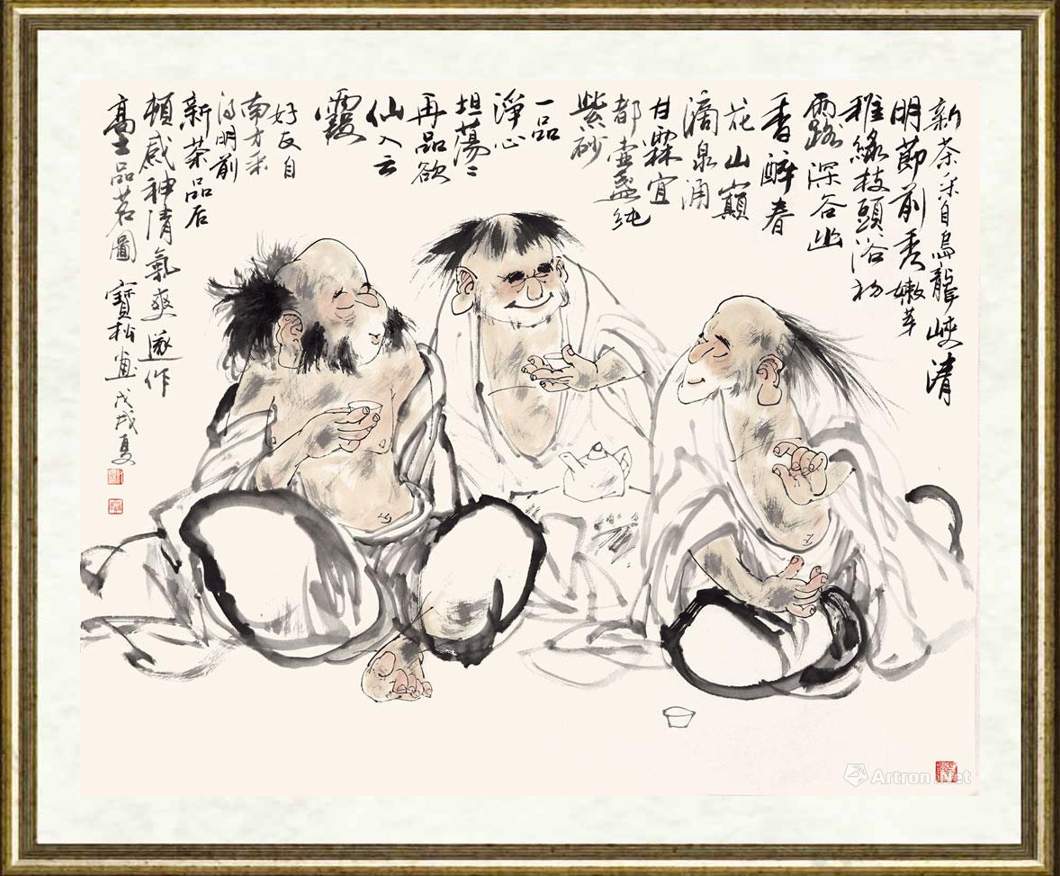 新茶采自烏龍峽清
明節前秀嫩芽
稚緑枝頭浴初
露深谷幽
香醉春
花山巔
滴泉涌
甘霖宜
都壺盞純
紫砂
一品
淨心
坦蕩〻
再品欲
仙入云
霞
好友自
南方来
得明前
新茶品后
頓感神清氣爽遂作
高士品茗圖 寶松畫 戊戌夏
Artron.Net